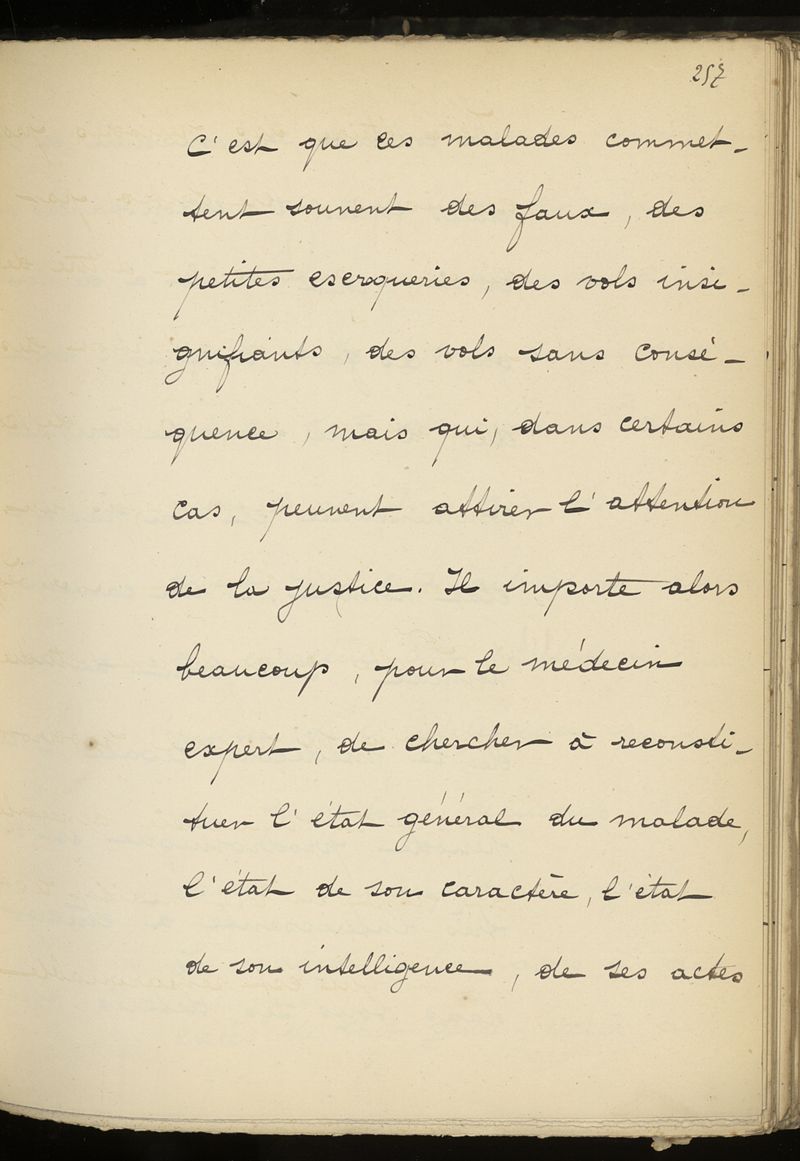 257
C'est que ces malades commet-
tent souvent des faux, des
petites escroqueries, des vols insi-
gnifiants, des vols sans consé-
quence, mais qui, dans certains
cas, peuvent attirer l'attention
de la justice. Il importe alors
beaucoup, pour le médecin
expert, de chercher à reconsti-
tuer l'état général du malade,
l'état de son caractère, l'état
de son intelligence, de ses actes